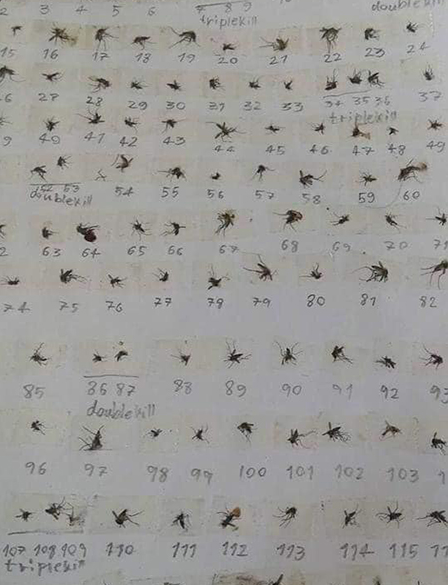 2 3 4 5 6 7 8 9 doublekill
triplekill
15 16 17 18 19 20 21 22 23 24
26 27 28 29 30 31 32 33 34 35 36 37
triplekill
39 40 41 42 43 44 45 46 47 48 49
52 53 54 55 56 57 58 59 60
doublekill
62 63 64 65 66 67 68 69 70 71
74 75 76 77 78 79 80 81 82
85 86 87 88 89 90 91 92 93
doublekill
96 97 98 99 100 101 102 103
107 108 109 110 111 112 113 114 115
triplekill